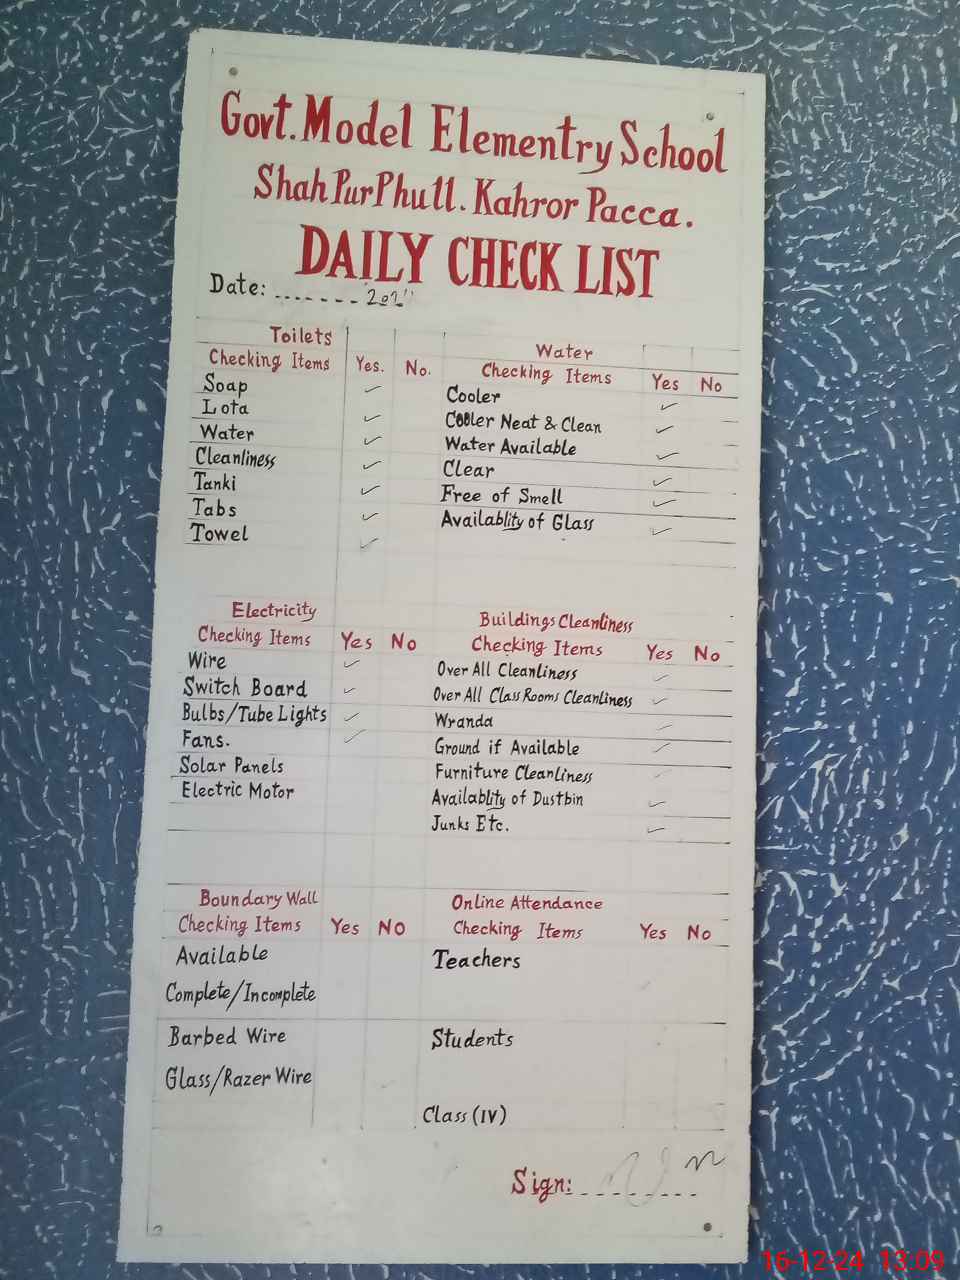 Govt. Model Elementry School
Shah Pur Phull. Kahror Pacca.
DAILY CHECK LIST
Date: .......
Toilets
Checking Items Yes. No.
Soap ✓
Lota ✓
Water ✓
Cleanliness ✓
Tanki ✓
Tabs ✓
Towel ✓
Water
Checking Items Yes No
Cooler ✓
Cooler Neat & Clean ✓
Water Available ✓
Clear ✓
Free of Smell ✓
Availablity of Glass ✓
Electricity
Checking Items Yes No
Wire ✓
Switch Board ✓
Bulbs/Tube Lights ✓
Fans. ✓
Solar Panels
Electric Motor
Buildings Cleanliness
Checking Items Yes No
Over All Cleanliness ✓
Over All Class Rooms Cleanliness ✓
Wranda ✓
Ground if Available ✓
Furniture Cleanliness ✓
Availablity of Dustbin ✓
Junks Etc. ✓
Boundary Wall
Checking Items Yes No
Available
Complete/Incomplete
Barbed Wire
Glass/Razer Wire
Online Attendance
Checking Items Yes No
Teachers
Students
Class (IV)
Sign: ........
16-12-24 13:09